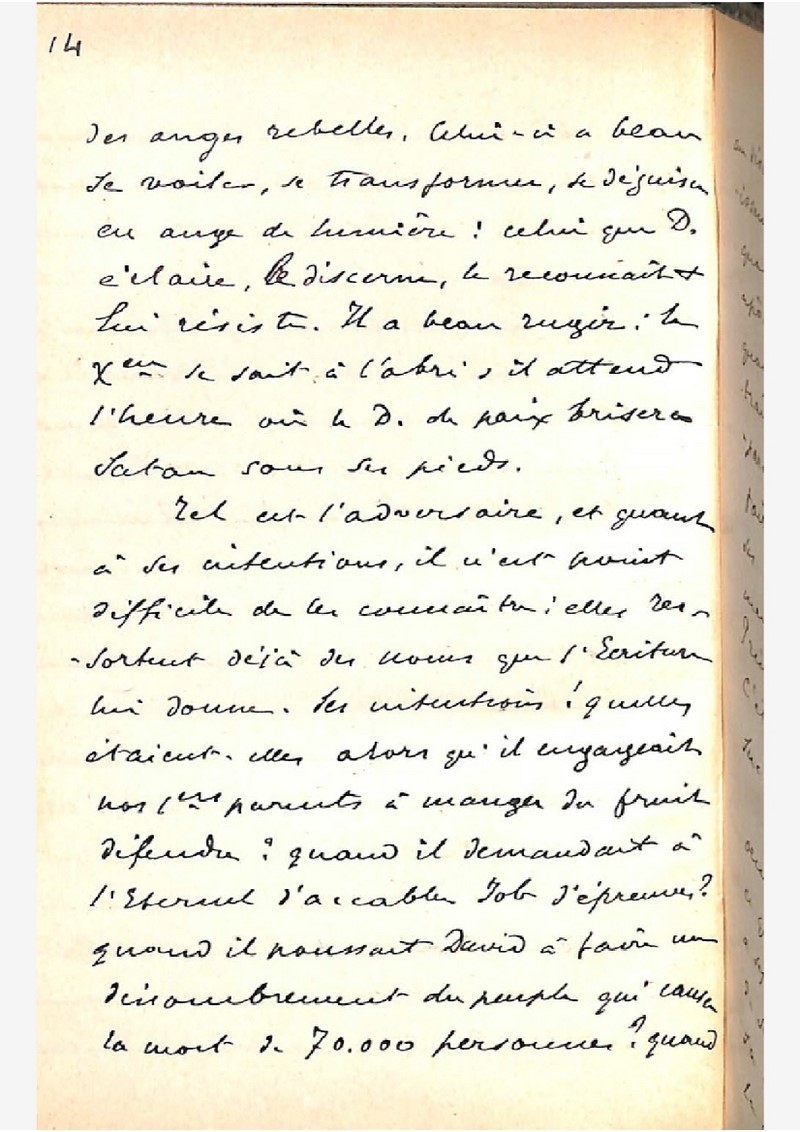 14
des anges rebelles. Celui-ci a beau
se voiler, se transformer, se déguiser
en ange de lumière : celui que D.
éclaire, le discerne, le reconnaît &
lui résiste. Il a beau rugir : le
Xen se sait à l'abri & il attend
l'heure où le D. de paix brisera
Satan sous ses pieds.
Tel est l'adversaire, et quant
à ses intentions, il n'est point
difficile de les connaître ; elles res-
-sortent déjà des noms que l'Ecriture
lui donne. Ses intentions ! quelles
étaient-elles alors qu'il engageait
nos 1ers parents à manger du fruit
défendu ? quand il demandait à
l'Eternel d'accabler Job d'épreuves ?
quand il poussait David à faire un
dénombrement du peuple qui causa
la mort de 70.000 personnes ? quand